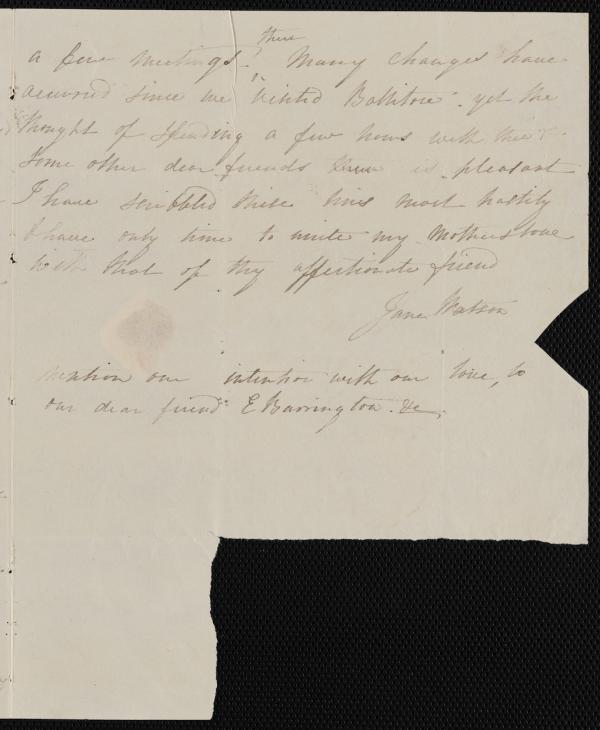 there
a few meetings. Many changes have
occurred since we visited Ballitore. yet the
thought of spending a few hours with thee &
some other dear friends there is pleasant
I have scribbled these lines most hastily
& have only time to unite my Mothers love
with that of thy affectionate friend
Jane Watson
Mention our intention with our love, to
our dear friend E Barrington &c.